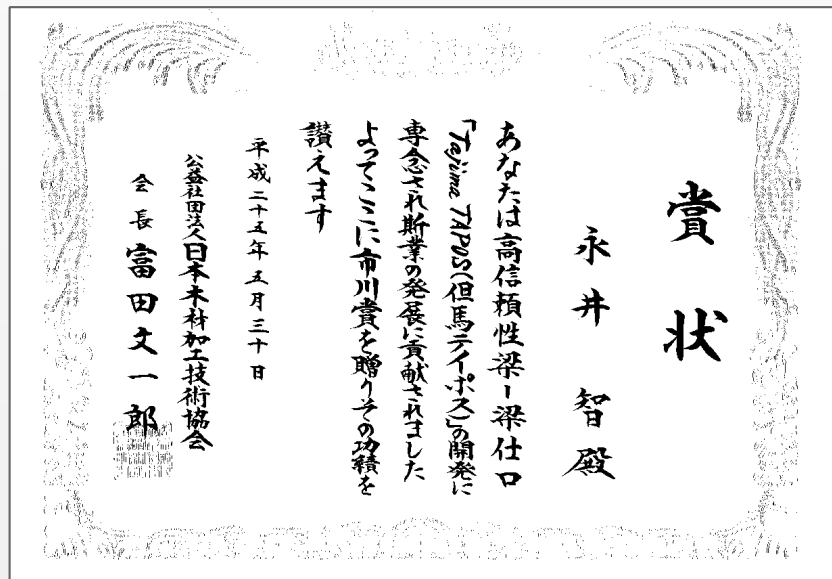 賞状
永井 智殿
あなたは高信頼性梁-梁仕口
「Tajima TAPOS(但馬テイポス)」の開発に
専念され斯業の発展に貢献されました
よってここに市川賞を贈りその功績を
讃えます
平成二十五年五月三十日
公益社団法人日本木材加工技術協会
会長 富田文一郎